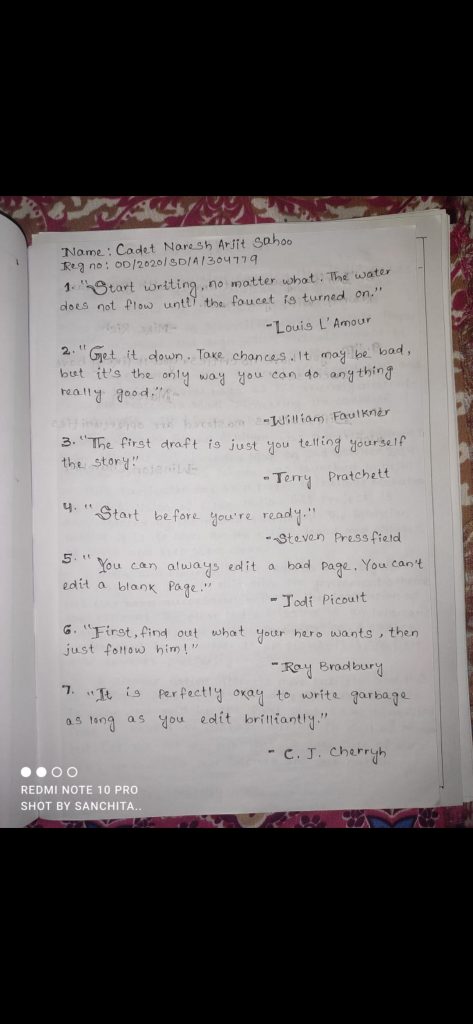 Name: Cadet Naresh Arjit Sahoo
Reg no: OD/2020/SD/A/304779
1. "Start writing, no matter what. The water
does not flow until the faucet is turned on."
- Louis L'Amour
2. "Get it down. Take chances. It may be bad,
but it's the only way you can do anything
really good."
- William Faulkner
3. "The first draft is just you telling yourself
the story."
- Terry Pratchett
4. "Start before you're ready."
- Steven Pressfield
5. "You can always edit a bad page. You can't
edit a blank Page."
- Jodi Picoult
6. "First, find out what your hero wants, then
just follow him!"
- Ray Bradbury
7. "It is perfectly okay to write garbage
as long as you edit brilliantly."
- C. J. Cherryh
REDMI NOTE 10 PRO
SHOT BY SANCHITA..